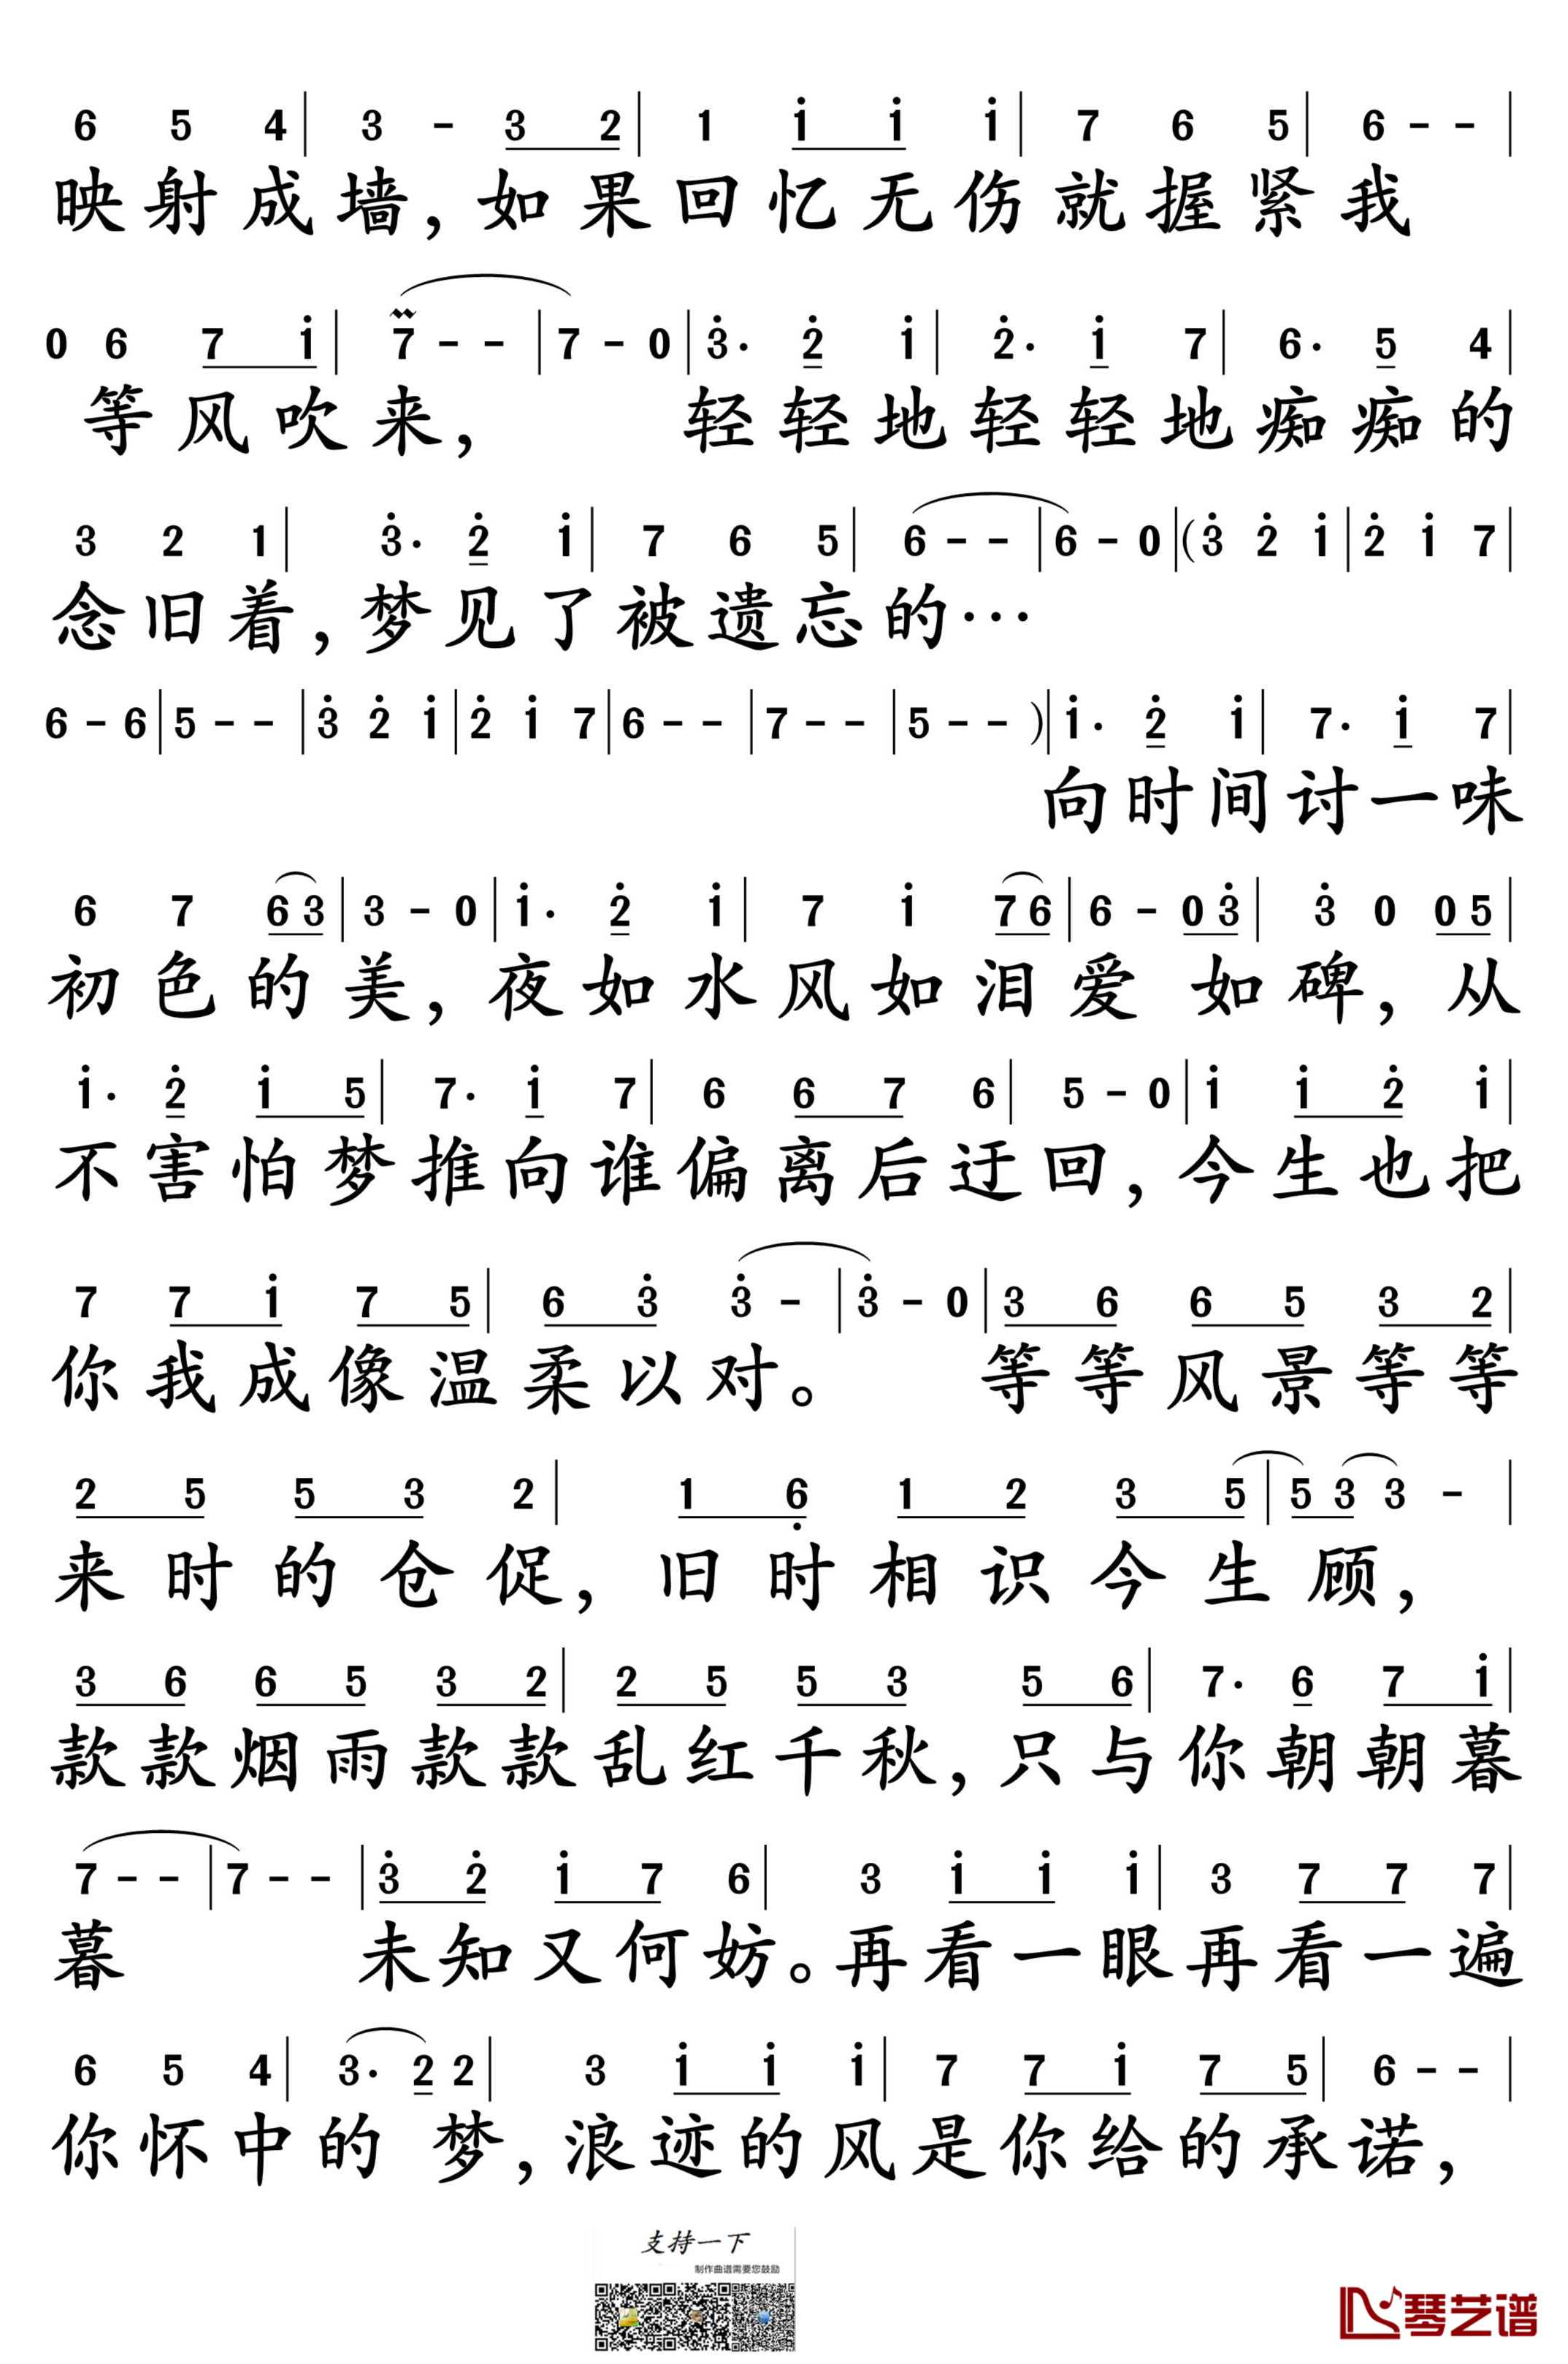 6 5 4 | 3 - 3 2 | 1 i i i | 7 6 5 | 6 - - |
映射成墙，如果回忆无伤就握紧我
0 6 7 i | 7 - - | 7 - 0 | 3̇· 2̇ i | 2̇· i 7 | 6· 5 4 |
等风吹来，轻轻地轻轻地痴痴的
3 2 1 | 3̇· 2̇ i | 7 6 5 | 6 - - | 6 - 0 | (3̇ 2̇ i | 2̇ i 7 |
念旧着，梦见了被遗忘的…
6 - 6 | 5 - - | 3̇ 2̇ i | 2̇ i 7 | 6 - - | 7 - - | 5 - - ) | i· 2̇ i | 7· i 7 |
向时间讨一味
6 7 6 3 | 3 - 0 | i· 2̇ i | 7 i 7 6 | 6 - 0 3̇ | 3̇ 0 0 5 |
初色的美，夜如水风如泪爱如碑，从
i· 2̇ i 5 | 7· i 7 | 6 6 7 6 | 5 - 0 | i i 2̇ i |
不害怕梦推向谁偏离后迂回，今生也把
7 7 i 7 5 | 6 3̇ 3̇ - | 3̇ - 0 | 3 6 6 5 3 2 |
你我成像温柔以对。等等风景等等
2 5 5 3 2 | 1 6̣ 1 2 3 5 | 5 3 3 - |
来时的仓促，旧时相识今生顾，
3 6 6 5 3 2 | 2 5 5 3 5 6 | 7· 6 7 i |
款款烟雨款款乱红千秋，只与你朝朝暮
7 - - | 7 - - | 3̇ 2̇ i 7 6 | 3 i i i | 3 7 7 7 |
暮未知又何妨。再看一眼再看一遍
6 5 4 | 3· 2 2 | 3 i i i | 7 7 i 7 5 | 6 - - |
你怀中的梦，浪迹的风是你给的承诺，
支持一下
制作曲谱需要您鼓励
琴艺谱